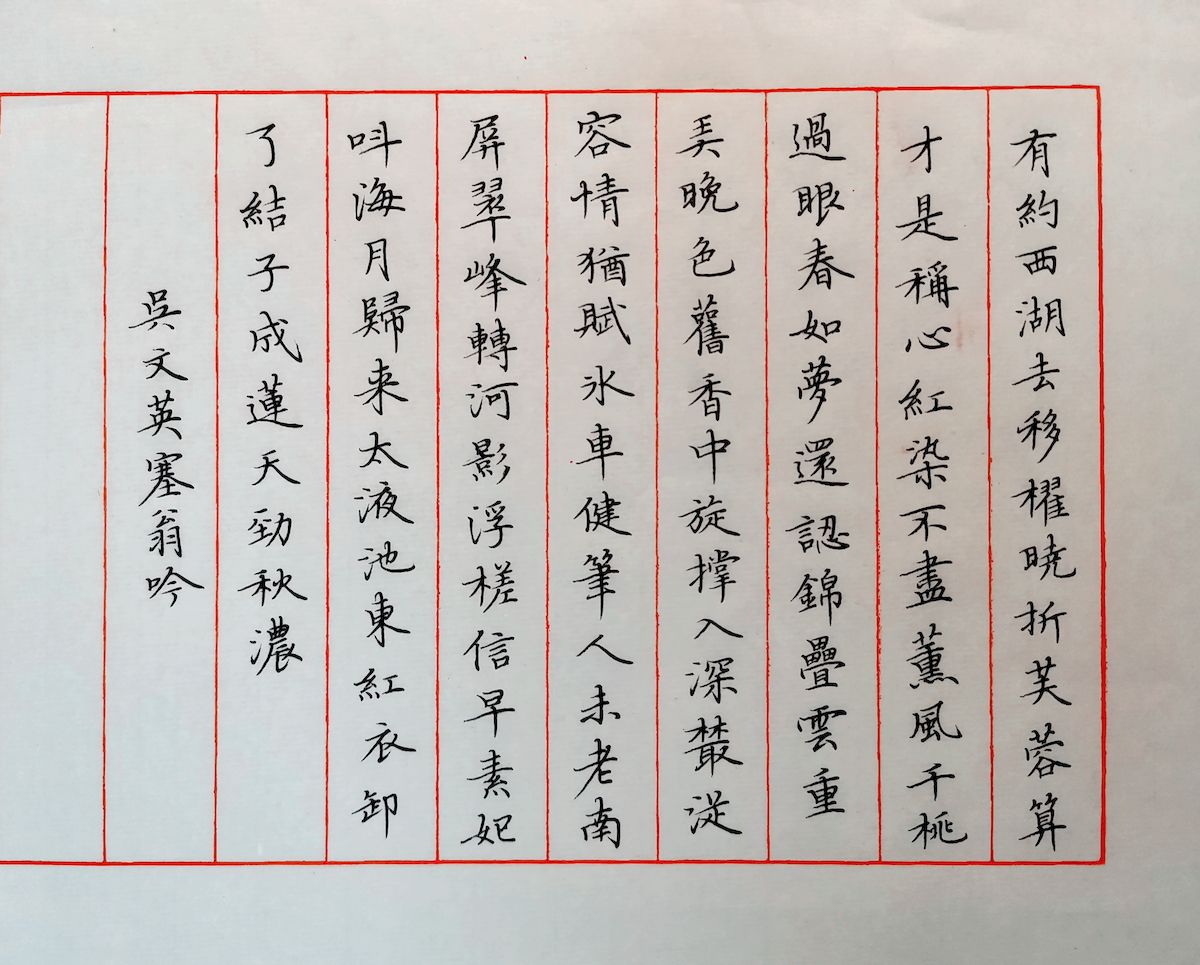 有約西湖去移櫂曉折芙蓉算
才是稱心紅染不盡薰風千桃
過眼春如夢還認錦疊雲重
弄晚色舊香中旋撑入深叢從
容情猶賦冰車健筆人未老南
屏翠峰轉河影浮槎信早素妃
呌海月歸来太液池東紅衣卸
了結子成蓮天勁秋濃
吳文英塞翁吟